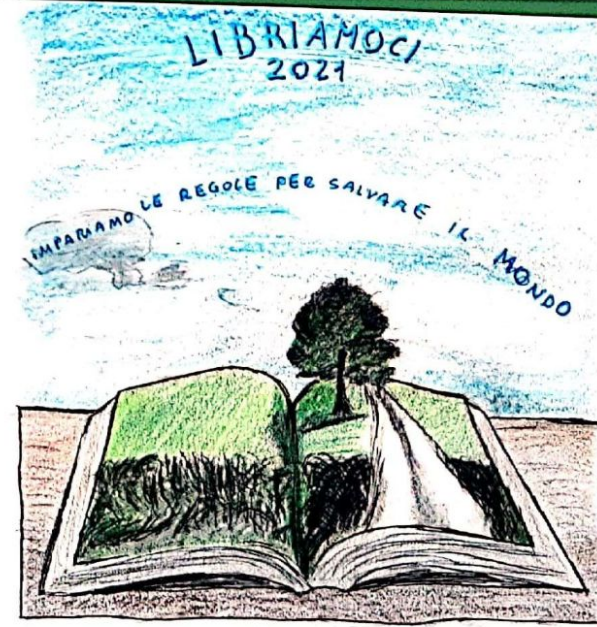 LIBRIAMOCI
2021
IMPARIAMO LE REGOLE PER SALVARE IL MONDO